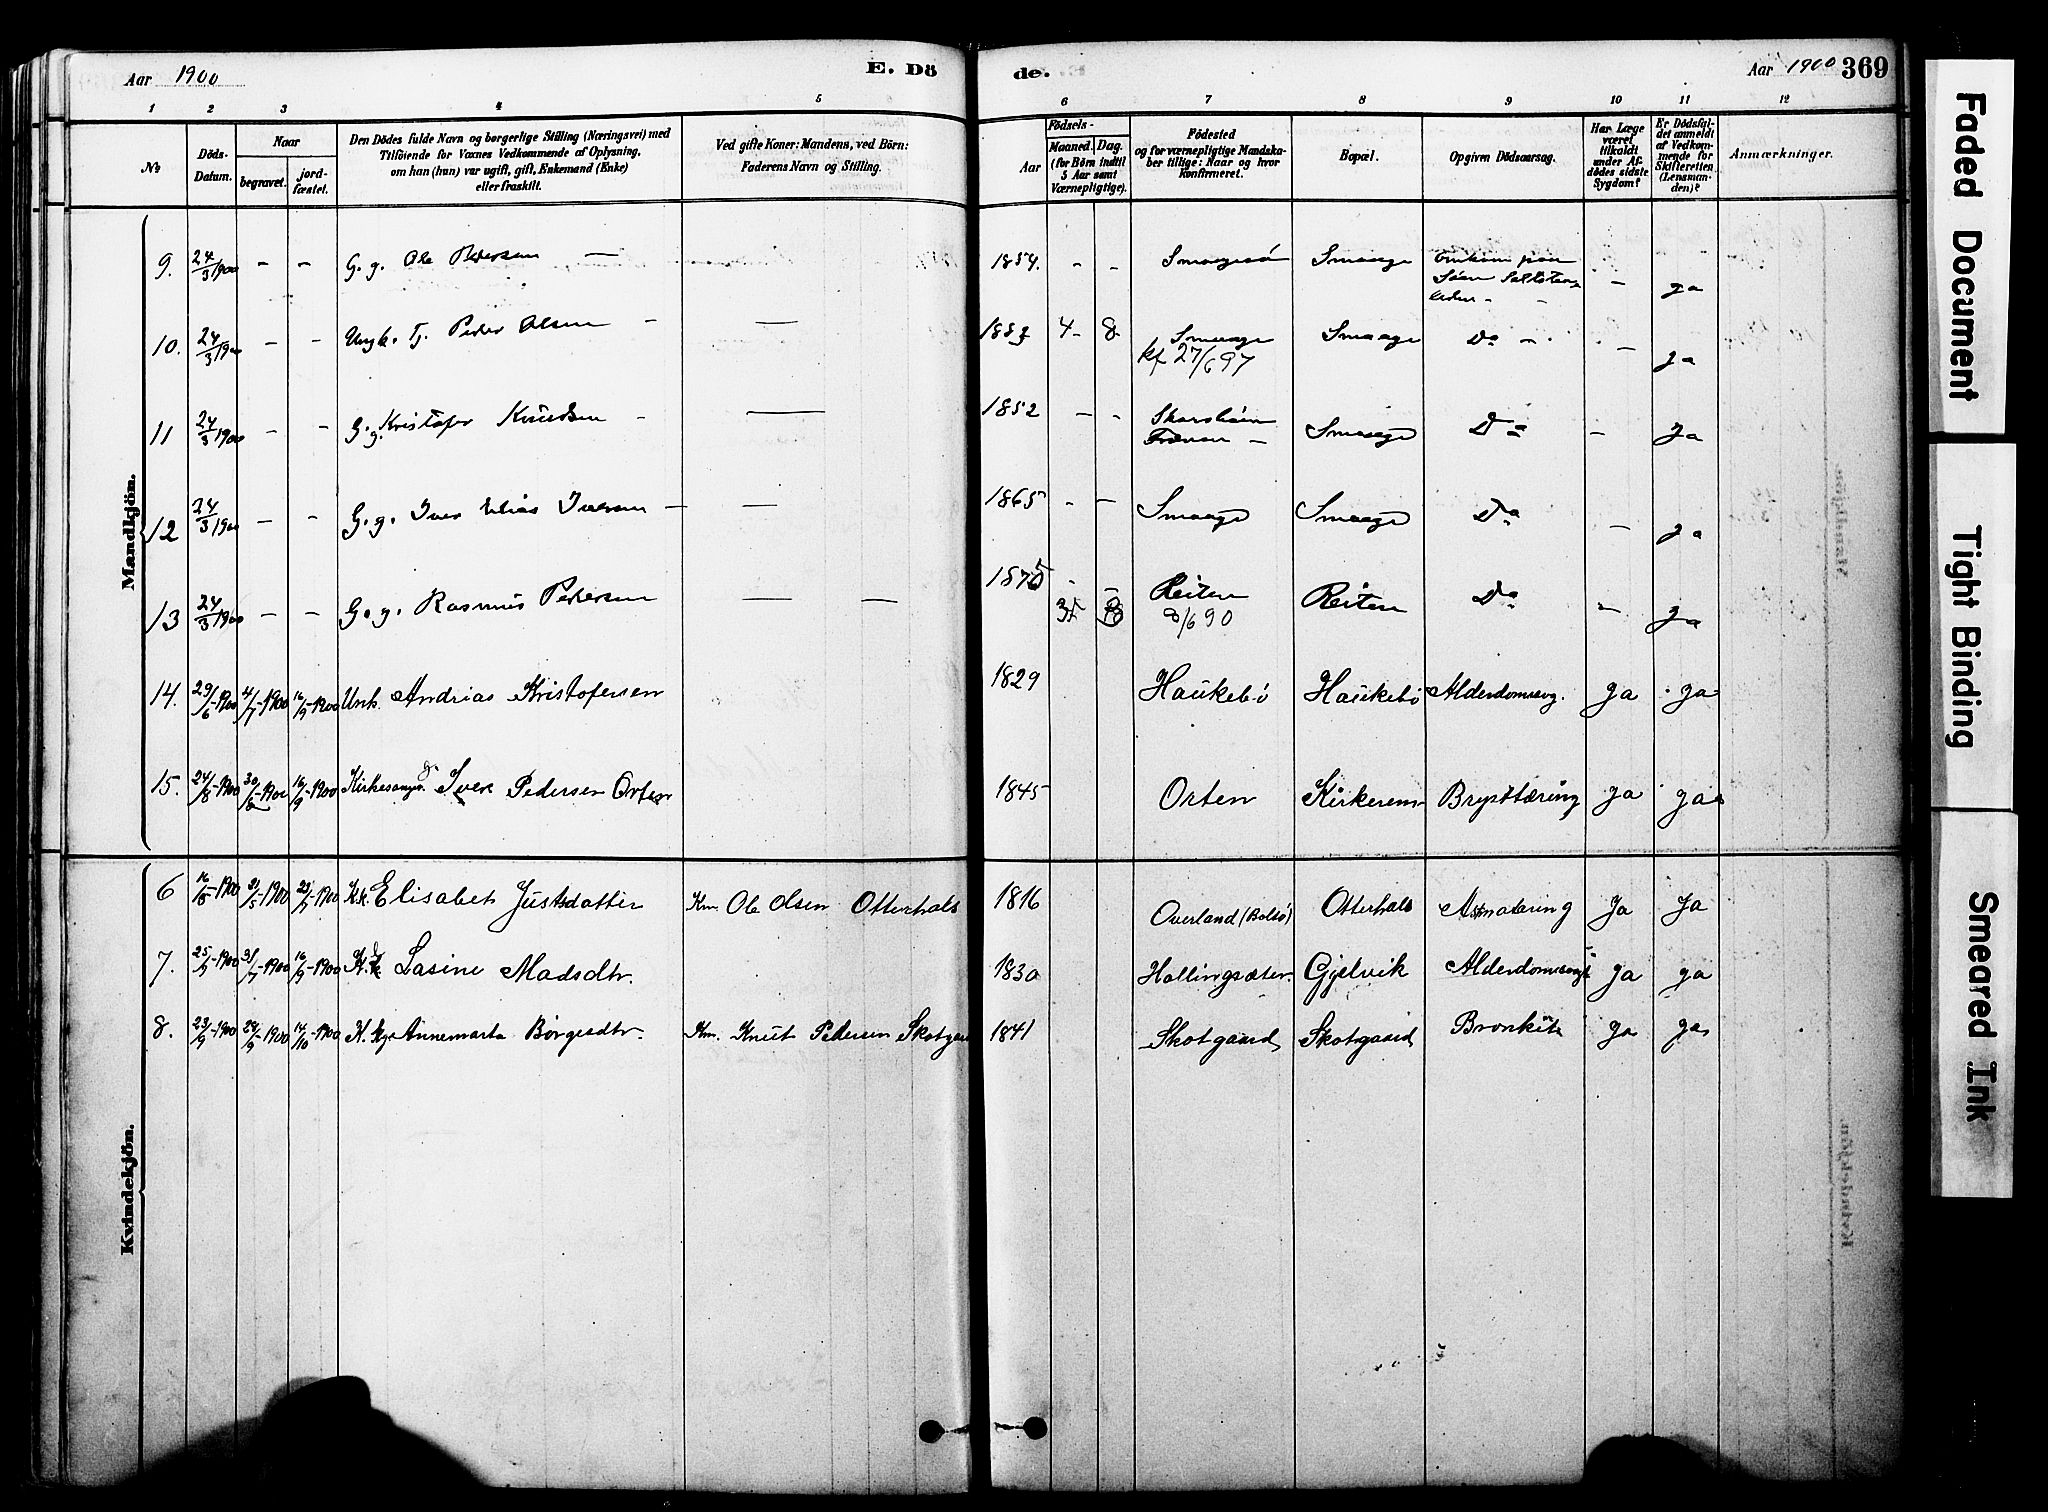 Aar 1900
E. Dö
de.
Aar 1900
369
1 2 3 4 5 6 7 8 9 10 11 12
No
Döds-
Datum.
Naar
begravet.
jord-
fæstet.
Den Dödes fulde Navn og borgerlige Stilling (Næringsvei) med
Tilföiende for Voxnes Vedkommende af Oplysning,
om han (hun) var ugift, gift, Enkemand (Enke)
eller fraskilt.
Ved gifte Koner: Mandens, ved Börn:
Faderens Navn og Stilling.
Födsels-
Aar
Maaned.
Dag.
(for Börn indtil
5 Aar samt
Værnepligtige).
Födested
og for værnepligtige Mandska-
ber tillige: Naar og hvor
Konfirmeret.
Bopæl.
Opgiven Dödsaarsag.
Har Læge
været
tilkaldt
under Af-
dödes sidste
Sygdom?
Er Dödsfal-
det anmeldt
af Vedkom-
mende for
Skifteretten
(Lensman-
den)?
Anmærkninger.
Mandkjön.
9. 24/3 1900 - - G. g. Ole Pedersen — 1854. - - Smaagesö Smaage Omkom paa
Söen - ja
10. 24/3 1900 - - Ungk. Tj. Peder Olsen - — 1883 4- 8- Smaage Smaage Do - - ja
kf 27/6 97
11 24/3 1900 - - G. g. Kristofer Knudsen - — 1852 - - Smaage Do - ja
Frænen -
12 24/3 1900 - - G. g. Iver Elias Iversen — — 1865 - - Smaage Smaage Do - ja
13 24/3 1900 - - G. g. Rasmus Pedersen — — 1875 Reiten Reiten Do - ja
8/6 90
14. 29/6-1900 4/7-1900 16/9-1900 Unk. Andrias Kristofersen 1829 Haukebö Haukebö Alderdomssvg. ja ja
15. 24/8-1900 30/8-1900 16/9-1900 Kirkesanger G. Iver Pedersen Orten 1845 Orten Kirkerem Brysttæring ja ja
Kvindekjön.
6 16/5-1900 31/5-1900 23/7-1900 K.k. Elisabet Justsdatter Km. Ole Olsen Otterhals 1816 Overland (Bolsö) Otterhals Astmatæring Ja Ja
7. 25/7-1900 31/7-1900 16/9-1900 Lasine Madsdtr. 1830 Hollingsæter Gjelvik Alderdomssvgt ja ja
8. 23/9-1900 29/9-1900 14/10-1900 K. Kg. Annemarta Börgesdtr. Km. Knut Pedersen Skotgaard 1841 Skotgaard Skotgaard Bronkit ja ja
Faded Document
Tight Binding
Smeared Ink